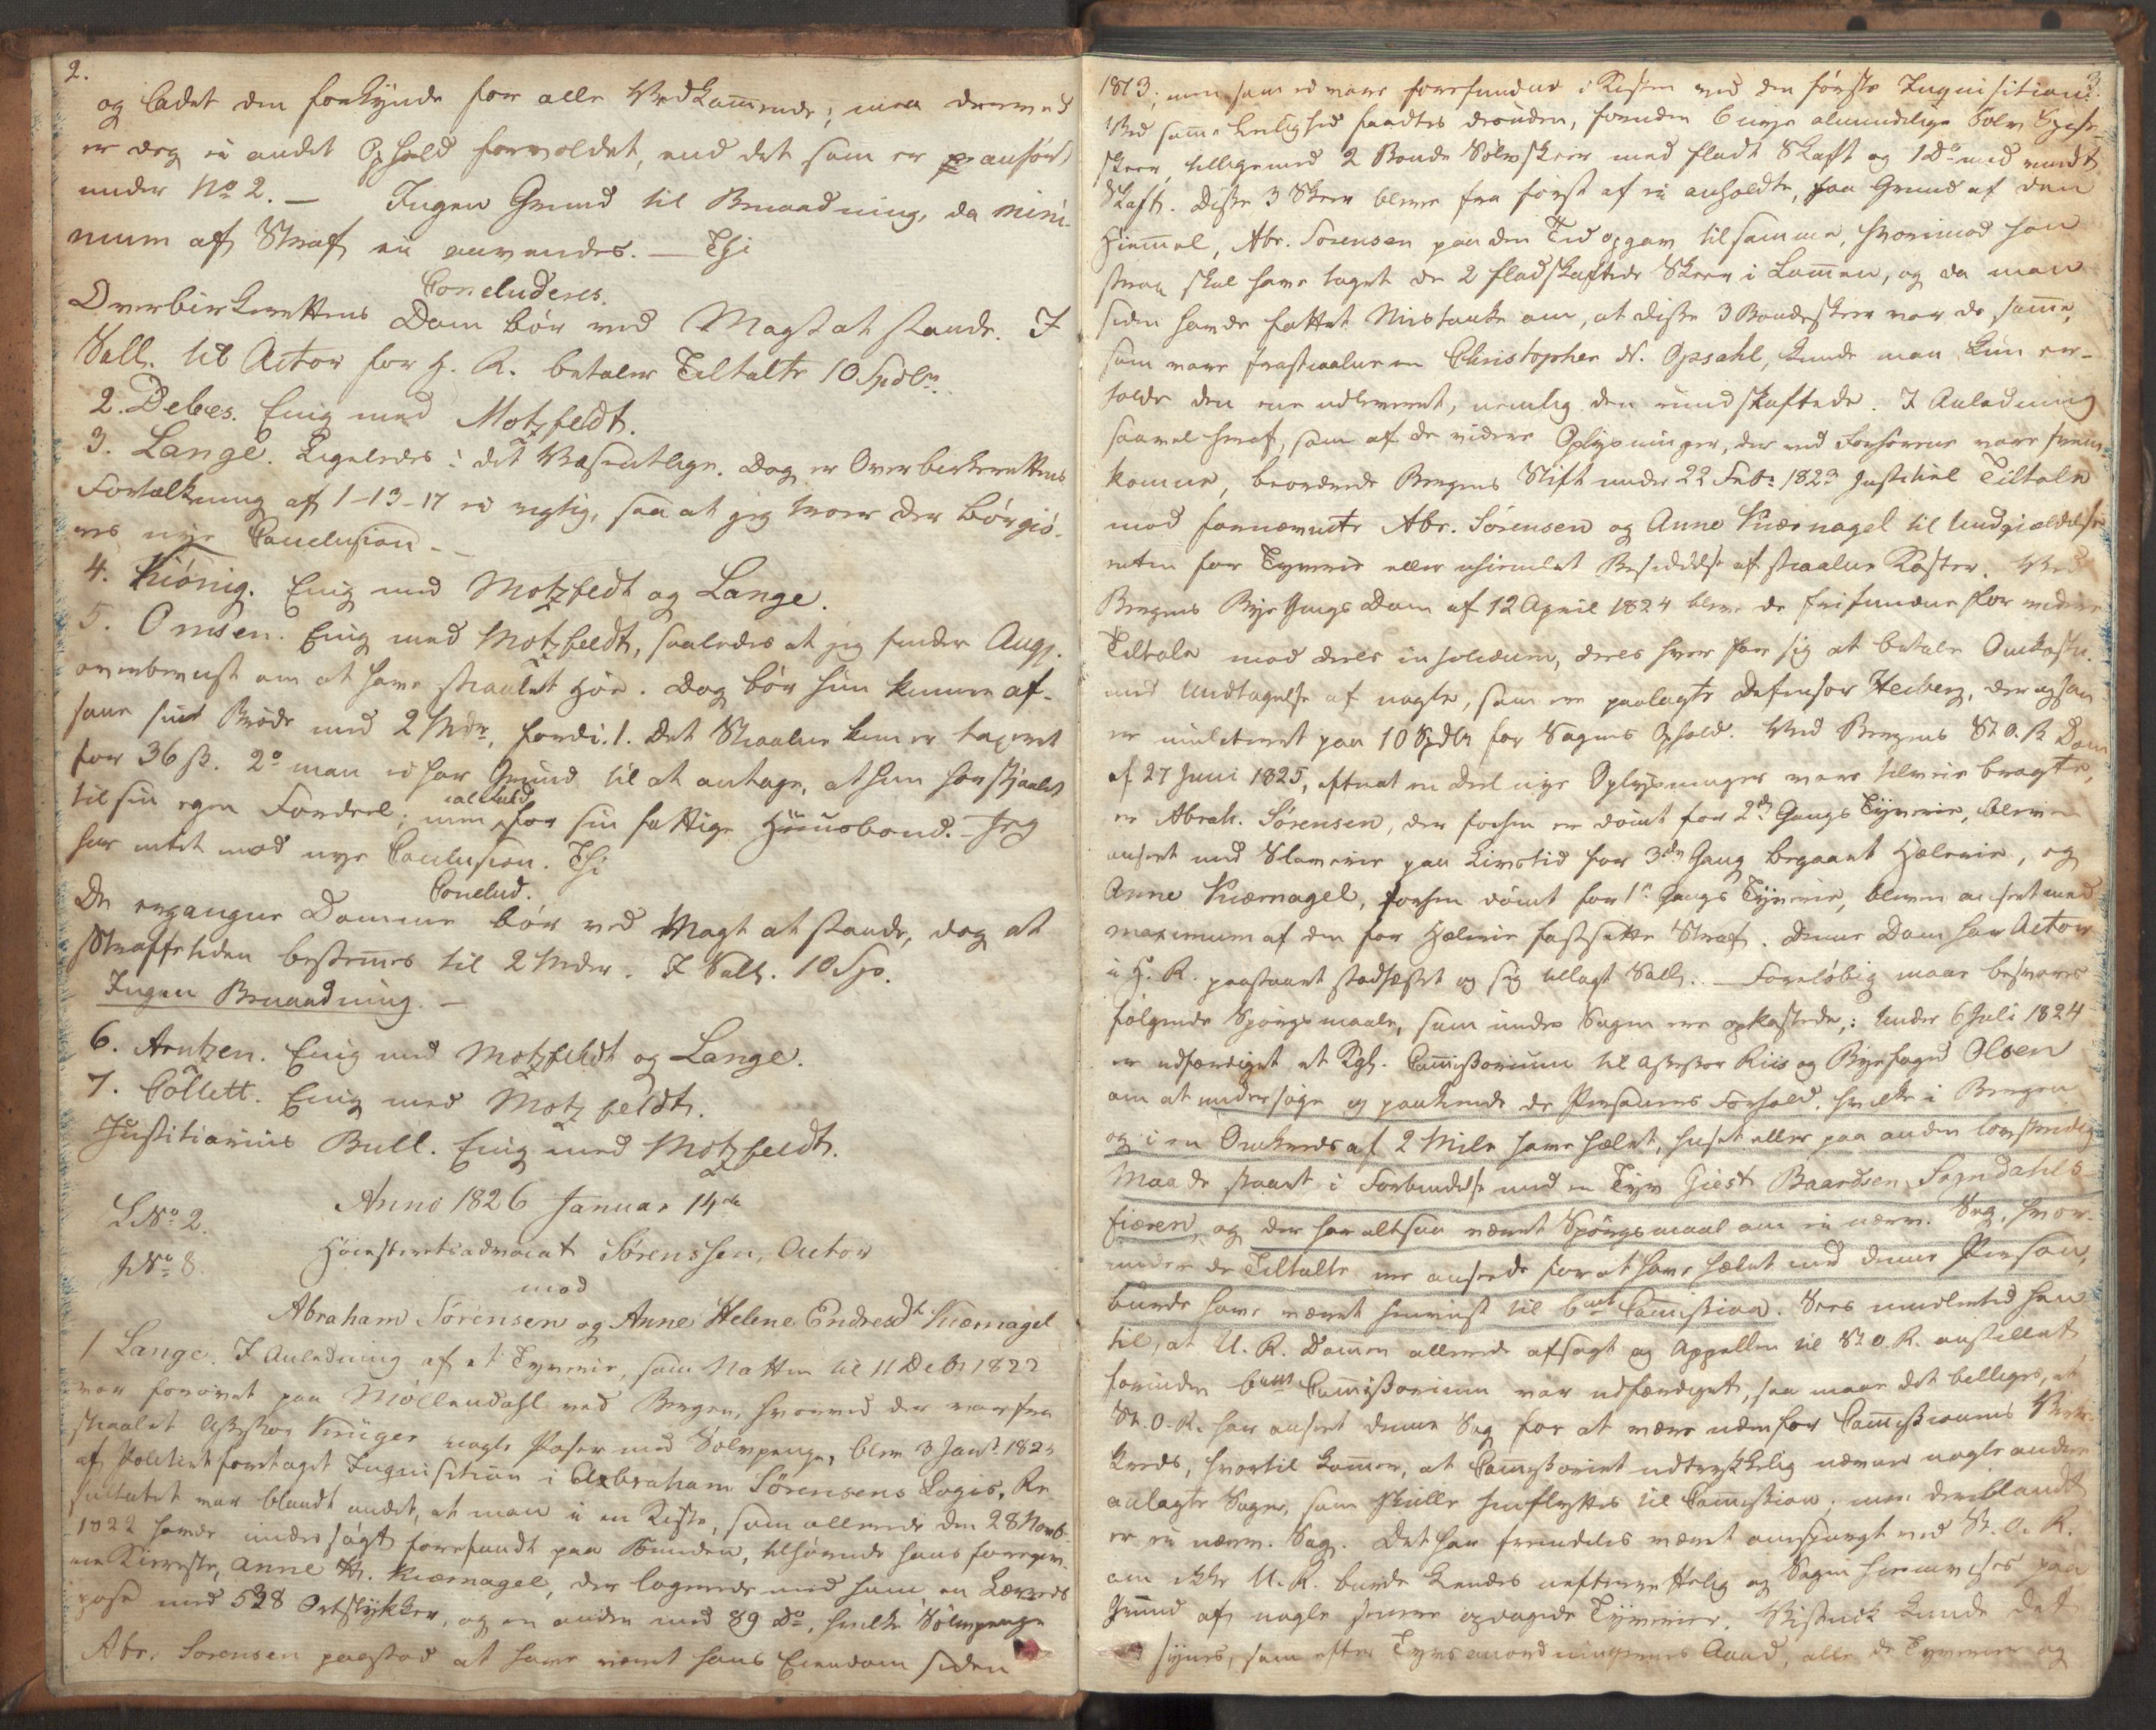 2.
og ladet den forkynde for alle Vedkommende; men derved
er dog ei andet Ophold forvoldet, end det som er anført
under No 2. — Ingen Grund til Benaadning, da mini-
mum af Straf ei anvendes. — Thi
Concluderes.
Overbirkerettens Dom bør ved Magt at stande. I
Sall. til Actor for H. R. betaler Tiltalte 10 Spdlr.
2. Debes. Enig med Motzfeldt.
3. Lange. Ligeledes i det Væsentlige. Dog er Overbirkerettens
Fortolkning af 1-13-17 ei rigtig, saa at jeg troer der bør giø-
res nye Conclusion. —
4. Kiønig. Enig med Motzfeldt og Lange.
5. Omsen. Enig med Motzfeldt, saaledes at jeg finder Angj.
overbeviist om at have stiaalet Høe. Dog bør hun kunne af-
sone sin Brøde med 2 Mdr, fordi. 1. det Stiaalne kun er taxeret
for 36 ß. 2o man ei har Grund til at antage, at hun har stjaalet
til sin egen Fordeel; men for sin fattige Huusbond. — Jeg
har intet mod nye Conclusion. Thi
Conclud.
De ergangne Domme bør ved Magt at stande, dog at
Straffetiden bestemmes til 2 Mdr. I Sall. 10 Sp.
Ingen Benaadning. —
6. Arntzen. Enig med Motzfeldt og Lange.
7. Collett. Enig med Motzfeldt.
Justitiarius Bull. Enig med Motzfeldt.
Anno 1826 Januar 14de
L No 2.
Høiesteretsadvocat Sørenssen, Actor
No 8.
mod
Abraham Sørensen og Anne Helene Endresdr Kiærnagel
1 Lange. I Anledning af et Tyverie, som Natten til 11 Decbr 1822
var forøvet paa Møllendahl ved Bergen, hvorved der var fra
stiaalet Assessor Krüger nogle Poser med Sølvpenge, blev 3 Janr 1823
af Politiet foretaget Inquisition i Abraham Sørensens Logis. Re
sultatet var blandt andet, at man i en Kiste, som allerede den 28 Novb.
1822 havde undersøgt forefandt paa Bunden, tilhørende hans foregiv-
ne Kiæreste, Anne H. Kiærnagel, der logerede med ham en Lærreds
pose med 538 Ortstykker, og en anden med 89 do, hvilke Sølvpenge
Abr. Sørensen paastod at have været hans Eiendom siden
3.
1813; men som ei vare forefundne i Kisten ved den første Inquisition.
Ved samme Leilighed fandtes desuden, foruden 6 nye almindelige Sølv Spise-
skeer, tilligemed 2 Bonde Sølvskeer med fladt Skaft og 1 do med rundt
Skaft. Disse 3 Skeer bleve fra først af ei anholdte, paa Grund af den
Hiemmel, Abr. Sørensen paa den Tid opgav til samme, hvorimod han
strax skal have taget de 2 fladskaftede Skeer i Lommen, og da man
siden havde fattet Mistanke om, at disse 3 Bondeskeer var de samme,
som vare frastiaalne en Christopher N. Opsahl, kunde man kun er-
holde den ene udleveret, nemlig den rundskaftede. I Anledning
saavel heraf, som af de videre Oplysninger, der ved Forhørene vare frem-
komne, beordrede Bergens Stift under 22 Febr 1823 Justitiel Tiltale
mod fornævnte Abr. Sørensen og Anne Kiærnagel til Undgieldelse
enten for Tyverie eller uhiemlet Besiddelse af stiaalne Koster. Ved
Bergens Bye Tings Dom af 12 April 1824 bleve de frifundne for videre
Tiltale mod deels in solidum, deels hver for sig at betale Omkostn.
med Undtagelse af nogle, som ere paalagte Defensor Heiberg, der ogsaa
er mulcteret paa 10 Spdlr for Sagens Ophold. Ved Bergens St. O. R. Dom
af 27 Juni 1825, efterat en Deel nye Oplysninger vare tilveie bragte,
er Abrah. Sørensen, der forhen er dømt for 2den Gangs Tyverie, bleven
anseet med Slaverie paa Livstid for 3die Gang begaaet Hælerie, og
Anne Kiærnagel, forhen dømt for 1ste Gangs Tyverie, bleven anseet med
maximum af den for Hælerie fastsatte Straf. Denne Dom har Actor
i H. R. paastaaet stadfæstet og sig tillagt Sall. — Foreløbig maae besvares
følgende Spørgsmaale, som under Sagen ere opkastede: Under 6 Juli 1824
er udfærdiget et Kgl. Commissorium til Assessor Riis og Byefoged Olsen
om at undersøge og paakiende de Personers Forhold, hvilke i Bergen
og i en Omkreds af 2 Mile have hælet, huset eller paa anden lovstridig
Maade staaet i Forbindelse med en Tyv Giest Baardsen Sogndahls-
fiæren, og der har altsaa været Spørgsmaal om ei nærv. Sag, hvor-
under de Tiltalte ere anseede for at have hælet med denne Person,
burde have været henviist til bemte Commission. Sees imidlertid hen
til, at U. R. Dommen allerede afsagt og Appellen til St. O. R. anstillet
forinden bemte Commissorium var udfærdiget, saa maae det billiges, at
St. O. R. har anseet denne Sag for at være udenfor Commissionens Virke-
kreds, hvortil kommer, at Commissoriet udtrykkelig nævner nogle andre
anlagte Sager, som skulle henflyttes til Commission. men deriblandt
er ei nærv. Sag. Det har fremdeles været omspurgt ved St. O. R.
om ikke U. R. burde kiendes uefterrettelig og Sagen hiemvises paa
Grund af nogle senere opdagede Tyverier. Vistnok kunde det
synes, som efter Tyvsanordningernes Aand, alle de Tyverier og